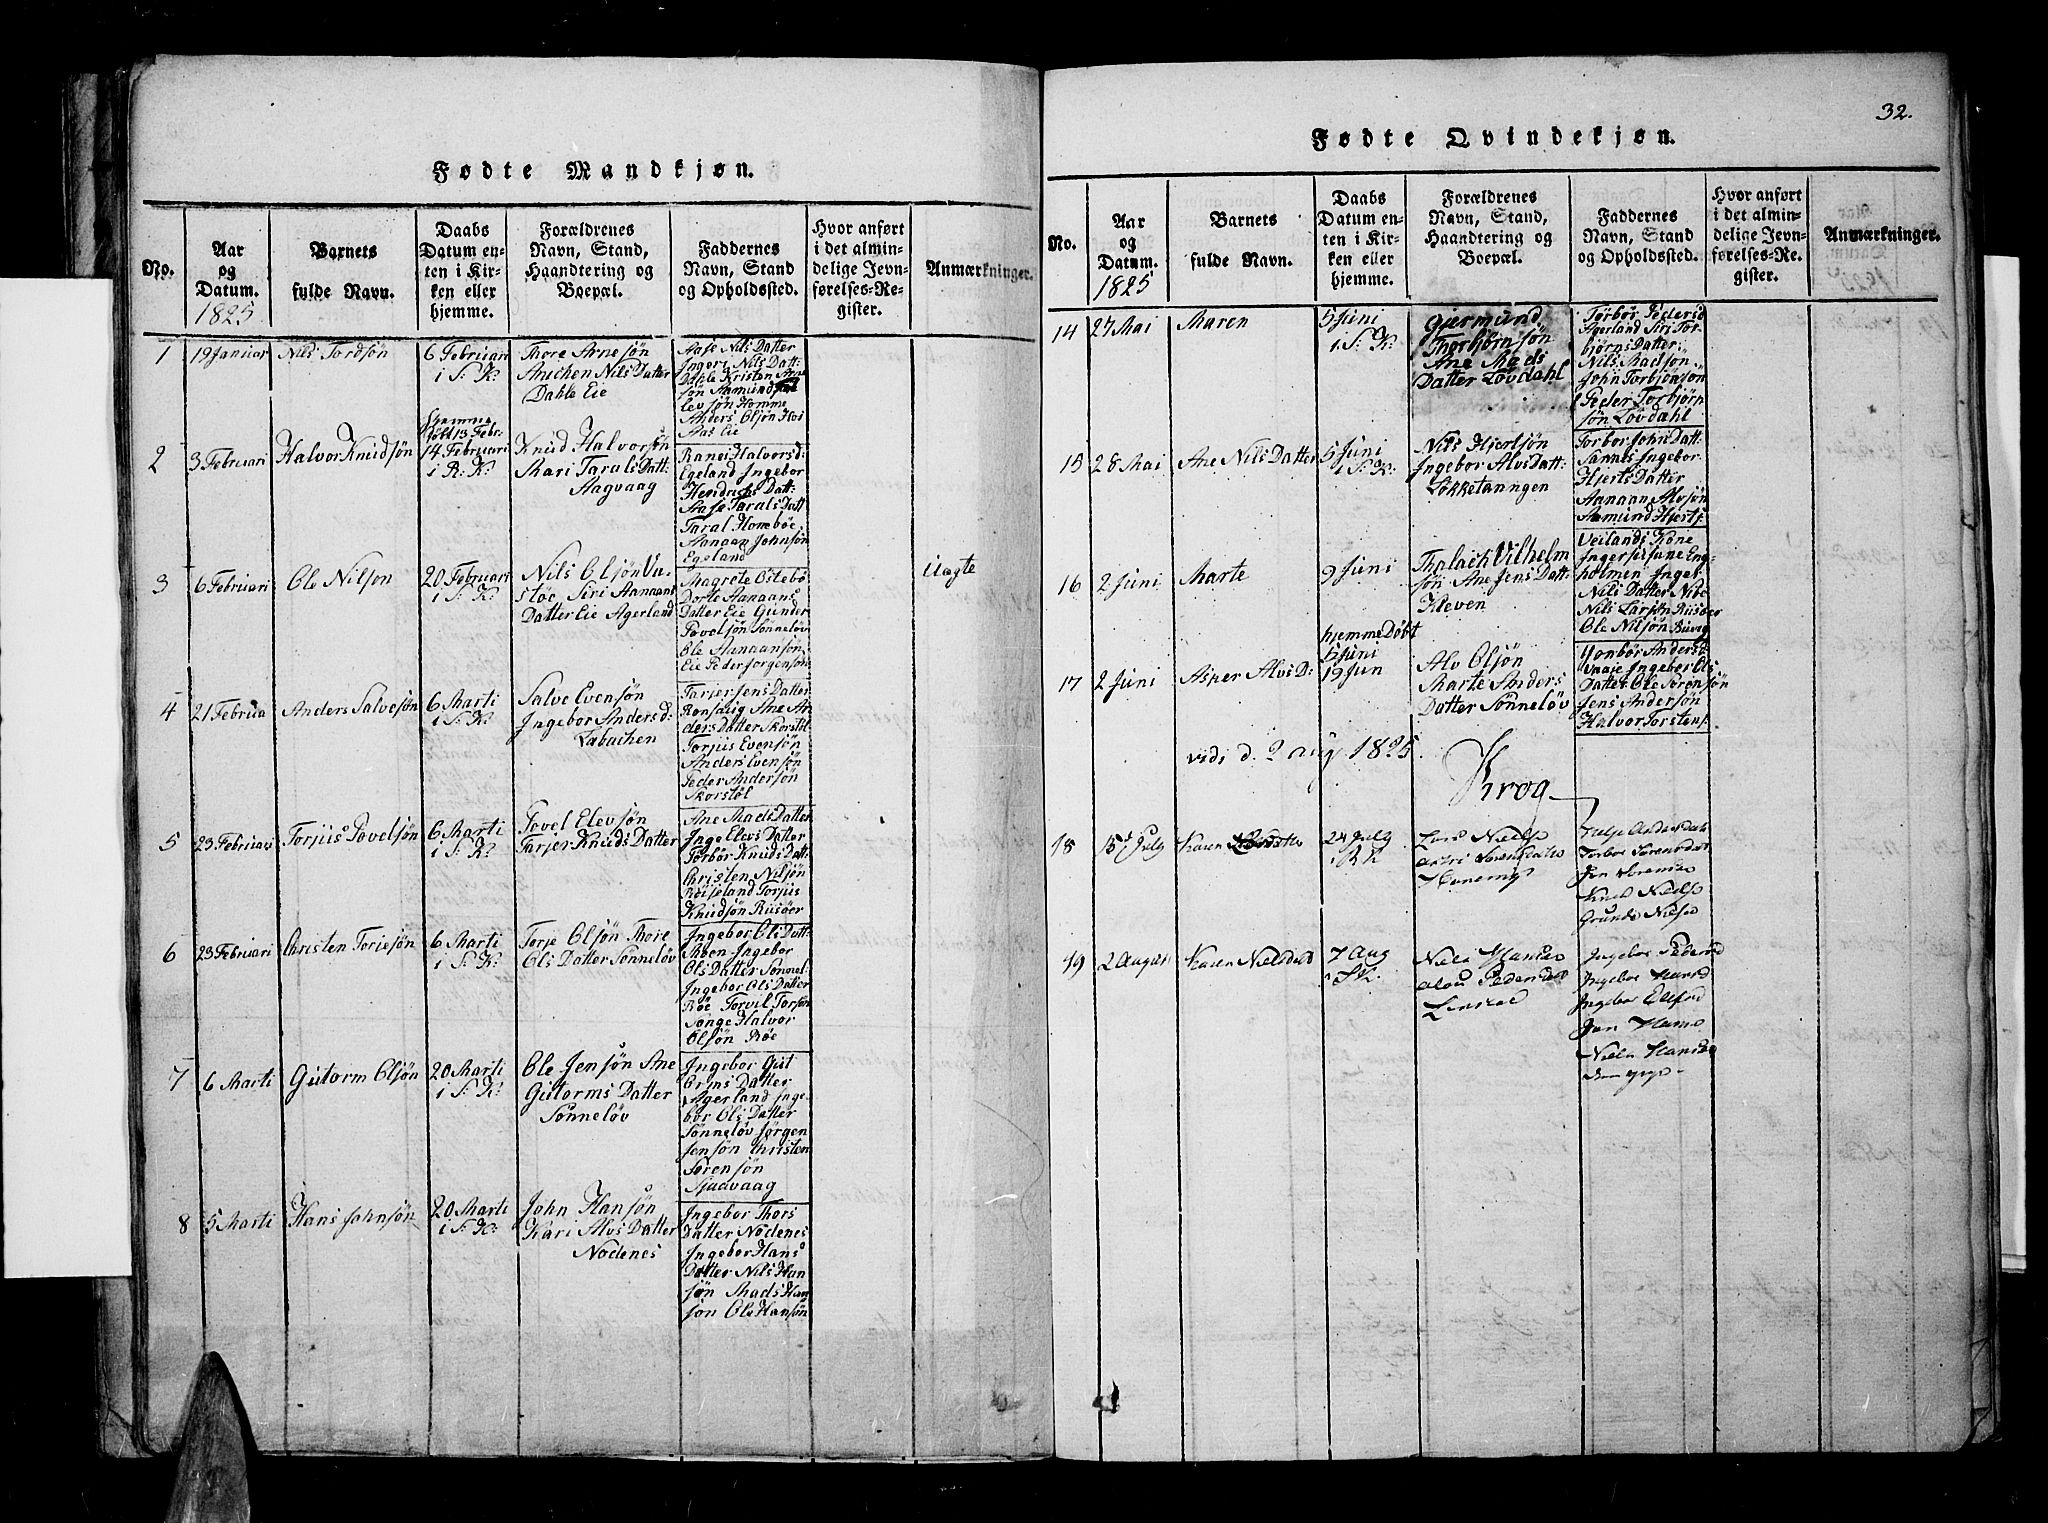 Fødte Mandkjøn.
No.
Aar
og
Datum.
1825
Barnets
fulde Navn.
Daabs
Datum en-
ten i Kir-
ken eller
hjemme.
Forældrenes
Navn, Stand,
Haandtering og
Boepæl.
Faddernes
Navn, Stand
og Opholdssted.
Hvor anført
i det almin-
delige Jevn-
førelses-Re-
gister.
Anmærkninger.
1
19 Januar
Nils Tordsjön
6 Februari
i S: K:
Thore Arnesjön
Anichen Nils Datter
Dahle Eie
Aase Nils Datter
Ingerj Nils Datt:
Dahle Kristen Arne
sjön Aamund
lev sjön Homme
Anders Olsjön Hoi
Aas Eie
2
3 Februari
Halvor Knudsjön
Hjemme
döbt 13 Febr:
14 Februari
i R: K:
Knud Halvorsjön
Mari Tarals Datt:
Aagvaag
Ranei Halvorsd:
Egeland Ingebor
Hendrichs Datt:
Aase Tarals Datt
Taral Homböe
Aanaan Johnsjön
Egeland
3
6 Februari
Ole Nilsjon
20 Februari
i S: K:
Nils Olsjön Un-
stöe Siri Aanaans
Datter Eie Agerland
Magrete Ostebö
Dorte Aanaans
Datter Eie Gunder
Povelsjön Sönnelöv
Ole Aanaansjön
Eie Peder Jorgensjön
Uægte
4
21 Februa
Anders Salvesjön
6 Marti
i S: K:
Salve Evensjön
Ingebor Anders d:
Labachen
Tarjer Jens Datter
Ronsavig Ane An
ders Datter Skorstöl
Torjus Evensjön
Anders Evensjön
Peder Andersjön
Skorstöl
5
23 Februari
Torjus Povelsjön
6 Marti
i S: K:
Povel Elevsjön
Tarjer Knuds Datter
Ane Mads Datter
Inge Elevs Datter
Torbör Knuds Datt:
Christen Nilsjön
Röiseland Torjus
Knudsjön Risöer
6
23 Februari
Christen Torjesjön
6 Marti
i S: K:
Torje Olsjön Thore
Ols Datter Sönnelöv
Ingebor Oli Datt:
Aaben Ingebor
Ols Datter Sönnel
Ingebor Ols Datter
Röe Torvil Torsön
Songe Halvor
Olsjön Röe
7
6 Marti
Gutorm Olsjön
20 Marti
i S: K:
Ole Jensjön Ane
Gutorms Datter
Sönnelöv
Ingebor Gut
orms Datter
Agerland Inge
bör Ols Datter
Sönnelöv Jörgen
Jensjön Christen
Sörensjön
Sjudvaag
8
5 Marti
Hans Johnsjön
20 Marti
i S: K:
John Hansjön
Kari Alvs Datter
Nodenes
Ingebor Thors
Datter Nodenes
Ingebor Hans
Datter Nils Han
sjön Mads Han
sjon Ole Hansjön
32.
Fødte Qvindekjøn.
No.
Aar
og
Datum.
1825
Barnets
fulde Navn.
Daabs
Datum en-
ten i Kir-
ken eller
hjemme.
Forældrenes
Navn, Stand,
Haandtering og
Boepæl.
Faddernes
Navn, Stand
og Opholdssted.
Hvor anført
i det almin-
delige Jevn-
førelses-Re-
gister.
Anmærkninger.
14
27 Mai
Maren
5 Juni
i S: K:
Gjermund
Thorbjörnsjön
Ane Mads
Datter Lövdahl
Torbör Pedersd
Agerland Siri Tor-
björns Datter:
Nils Madsjön
John Torbjönsjön
Peder Torbjörn
sjön Lövdahl
15
28 Mai
Ane Nils Datter
5 Juni
i S: K:
Nils Hjertsjön
Ingebor Alvs Datt:
Lökketanngen
Torbor John Datt:
Sannes Ingebor
Hjerts Datter
Aanaan Alvsjön
Aamund Hjertsj:
16
2 Juni
Marte
9 Juni
Vilhelm
sjön Ane Jens Datt:
Kleven
Veilands Kone
Eng-
holmen Ingeb
Nils Datter Nibe
Nils Larsjön Risöer
Ole Nilsjön
17
2 Juni
Asper Alvs D:
hjemme Döbt
5 Juni
19 Jun
Alv Olsjön
Marte Anders
Datter Sönnelöv
Anders d:
Ingebor Ols
Datter Ole Sörensjön
Jens Andersjön
Halvor Torstens j:
vidi d. 2 Aug 1825
Krog
18
15 July
Karen
24 July
i R K
Lars Nielse
Sørensdatter
Andersdatr
Torbor Sørensdatr
Jen Sørense
Knud Nielse
Gunde Nielse
19
2 August
Karen Nielsdatr
7 Aug
i S K.
Niels Hanse
Pedersdatr
Ingebor Pedersd
Ingebor Hansd
Ingebor Ellefsd
Jan Hanse
Niels Hanse